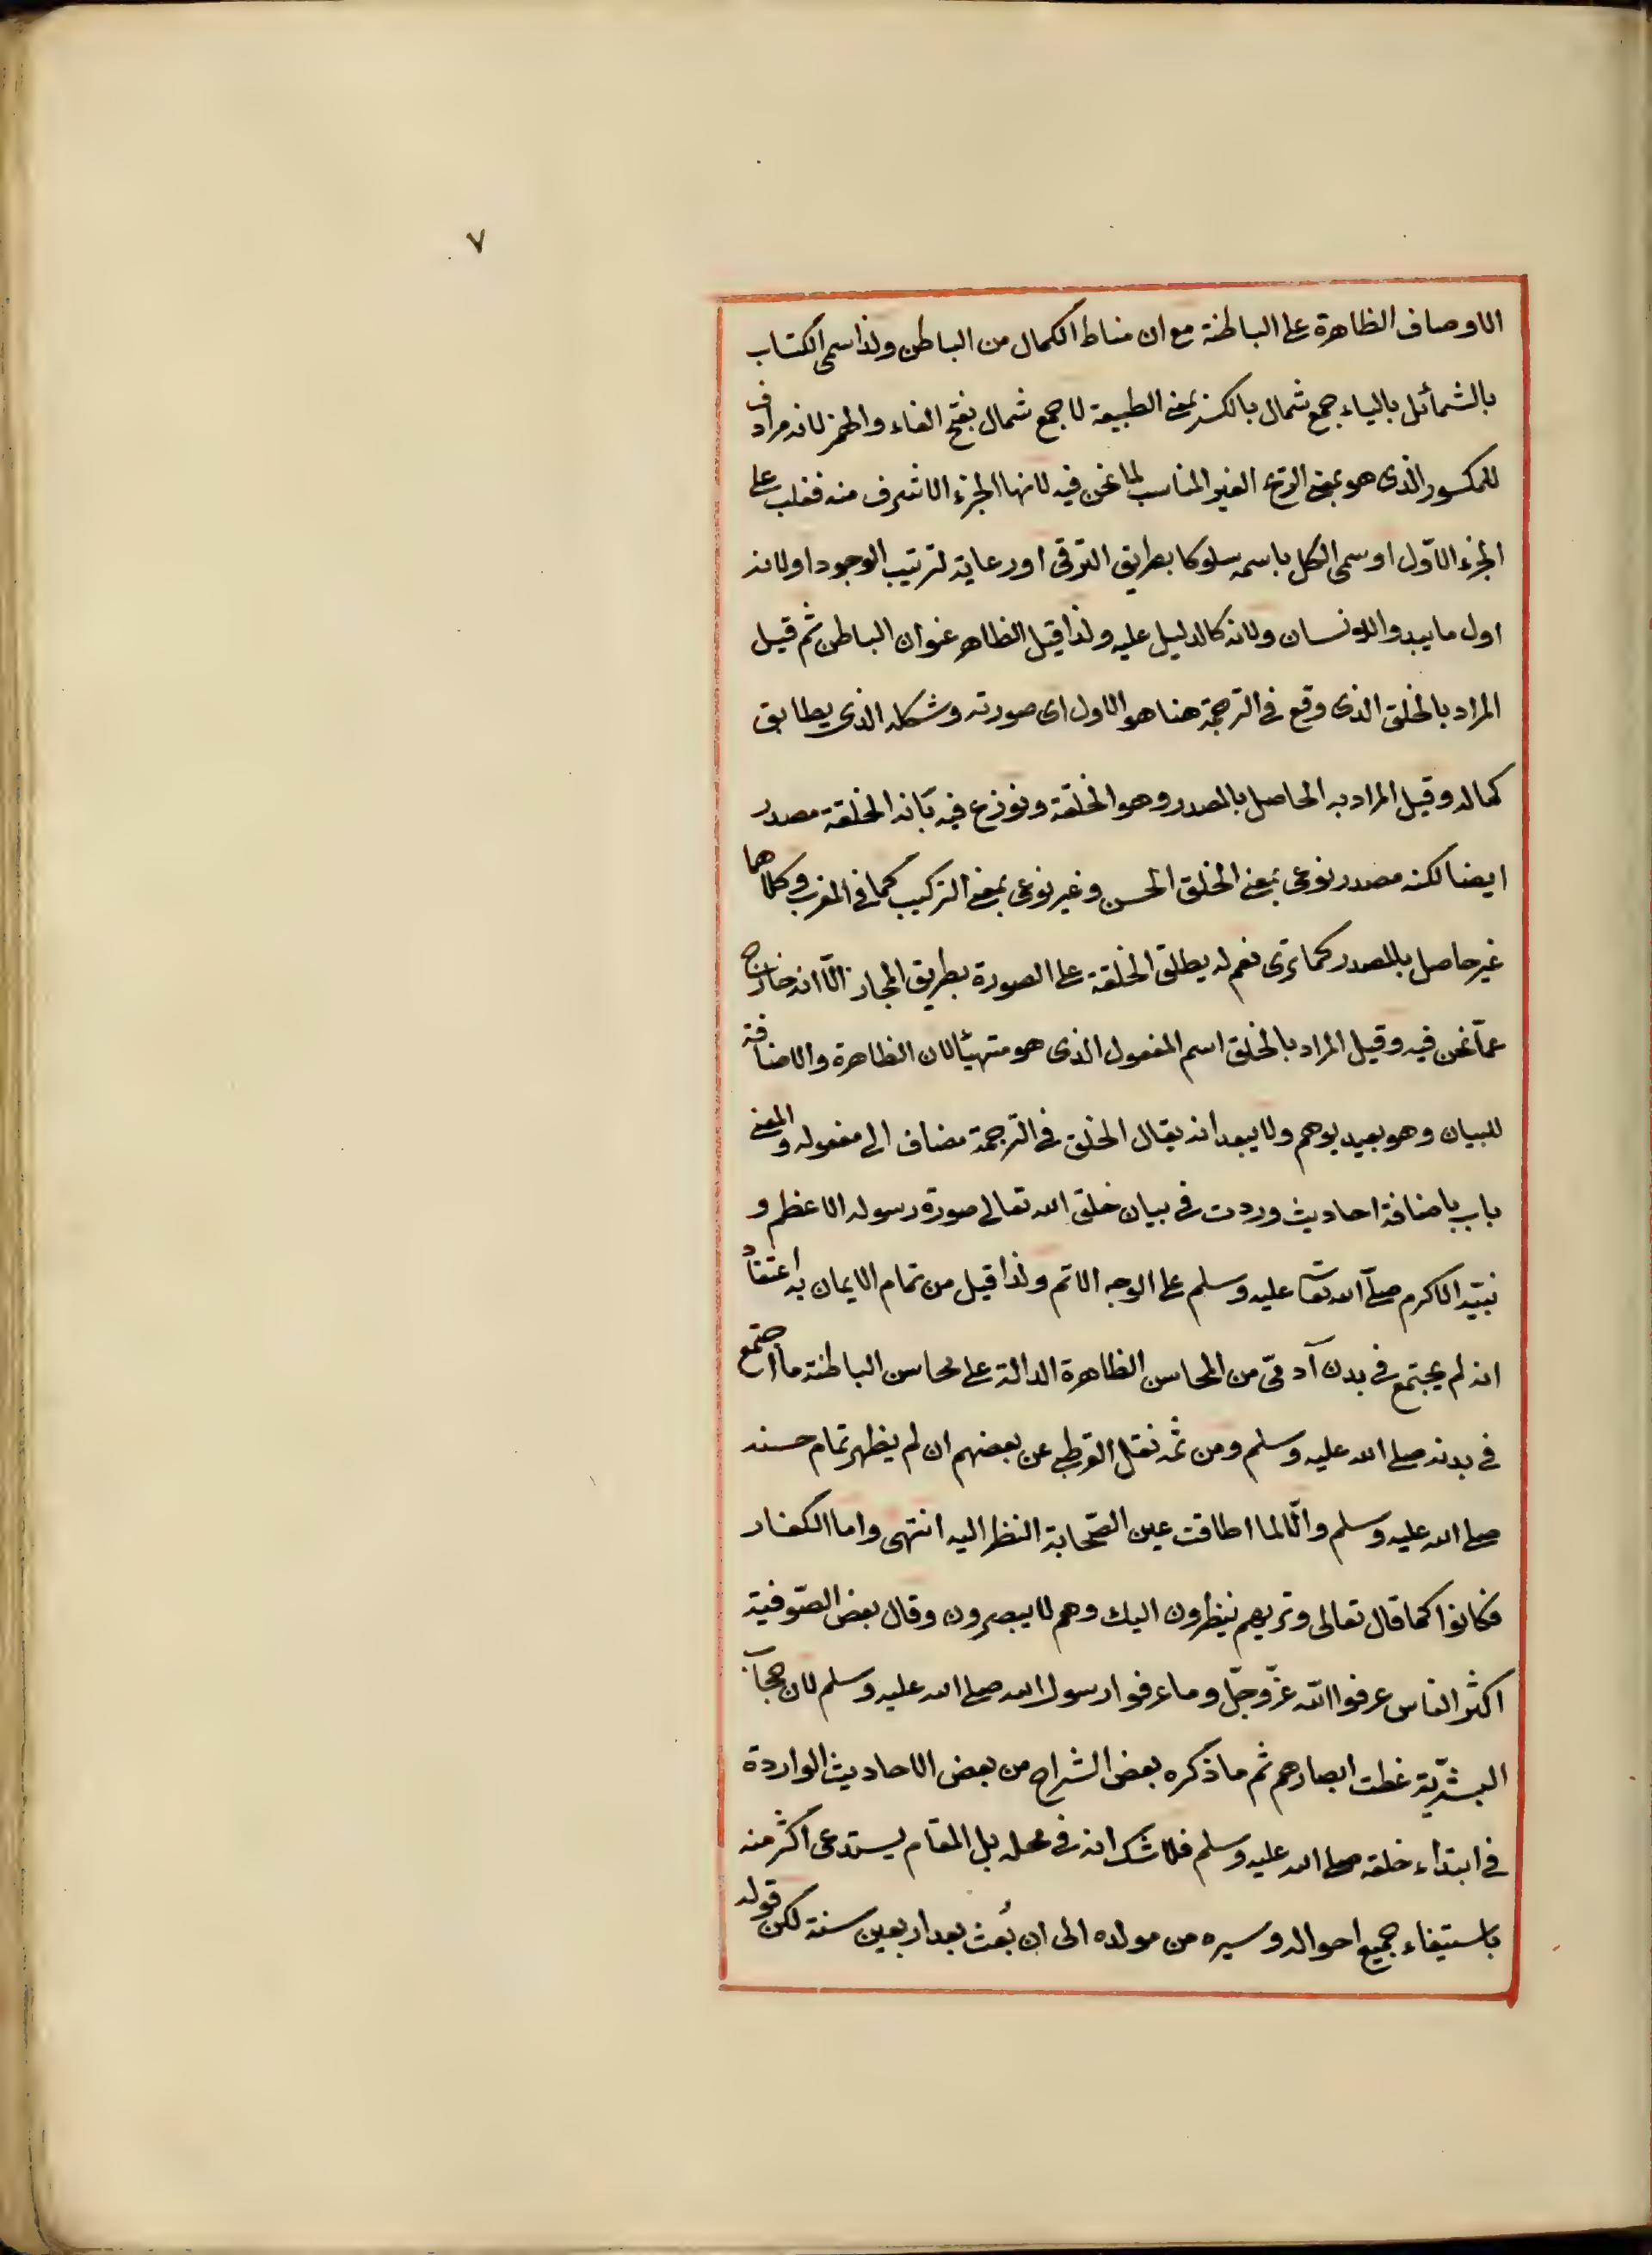 ٧
الاوصاف الظاهرة على الباطنة مع ان مناط الكمال من الباطن ولذا سمى الكتاب
بالشمائل بالياء جمع شمال بالكسر بمعنى الطبيعة لا جمع شمال بفتح الفاء والهمز لانه مرادف
للمكسور الذى هو بمعنى الريح الغير المناسب لما نحن فيه لانها الجزء الاشرف منه فغلب على
الجزء الاوّل او سمى الكل باسمه سلوكا بطريق الترقى او رعاية لترتيب الوجود او لانه
اول ما يبدو اللانسان ولانه كالدليل عليه ولذا قيل الظاهر عنوان الباطن ثم قيل
المراد بالخلق الذى وقع فى الترجمة هنا هو الاول اى صورته وشكله الذى يطابق
كماله وقيل المراد به الحاصل بالمصدر وهو الخلقة ونوزع فيه بانه الخلقة مصدر
ايضا لكنه مصدر نوعى بمعنى الخلق الحسن وغير نوعى بمعنى التركيب كما فى المغرب وكلاهما
غير حاصل بالمصدر كما ترى نعم له يطلق الخلقة على الصورة بطريق المجاز الّا انه خارج
عمّا نحن فيه وقيل المراد بالخلق اسم المفعول الذى هو متهيأ لان الظاهرة والاضافة
للبيان وهو بعيد يوهم ولا يبعد انه يقال الخلق فى الترجمة مضاف الى مفعوله والمعنى
باب باضافة احاديث وردت فى بيان خلق الله تعالى صورة رسوله الاعظم و
نبيّه الاكرم صلّى الله تعا عليه وسلم على الوجه الاتم ولذا قيل من تمام الايمان به اعتقاد
انه لم يجتمع فى بدن آدمىّ من المحاسن الظاهرة الدالة على محاسن الباطنة ما اجتمع
فى بدنه صلى الله عليه وسلم ومن ثمه نقل القرطبى عن بعضهم ان لم يظهر تمام حسنه
صلى الله عليه وسلم والّا لما اطاقت عين الصّحابة النظر اليه انتهى واما الكفار
فكانوا كما قال تعالى وتريهم ينظرون اليك وهم لا يبصرون وقال بعض الصّوفية
اكثر الناس عرفوا الله عزّ وجلّ وما عرفوا رسول الله صلى الله عليه وسلم لان حجاب
البشريّة غطت ابصارهم ثم ما ذكره بعض الشراح من بعض الاحاديث الواردة
فى ابتداء خلقه صلى الله عليه وسلم فلا شك انه فى محله بل المقام يستدعى اكثر منه
باستيفاء جميع احواله وسيره من مولده الى ان بُعث بعد اربعين سنة لكن قوله